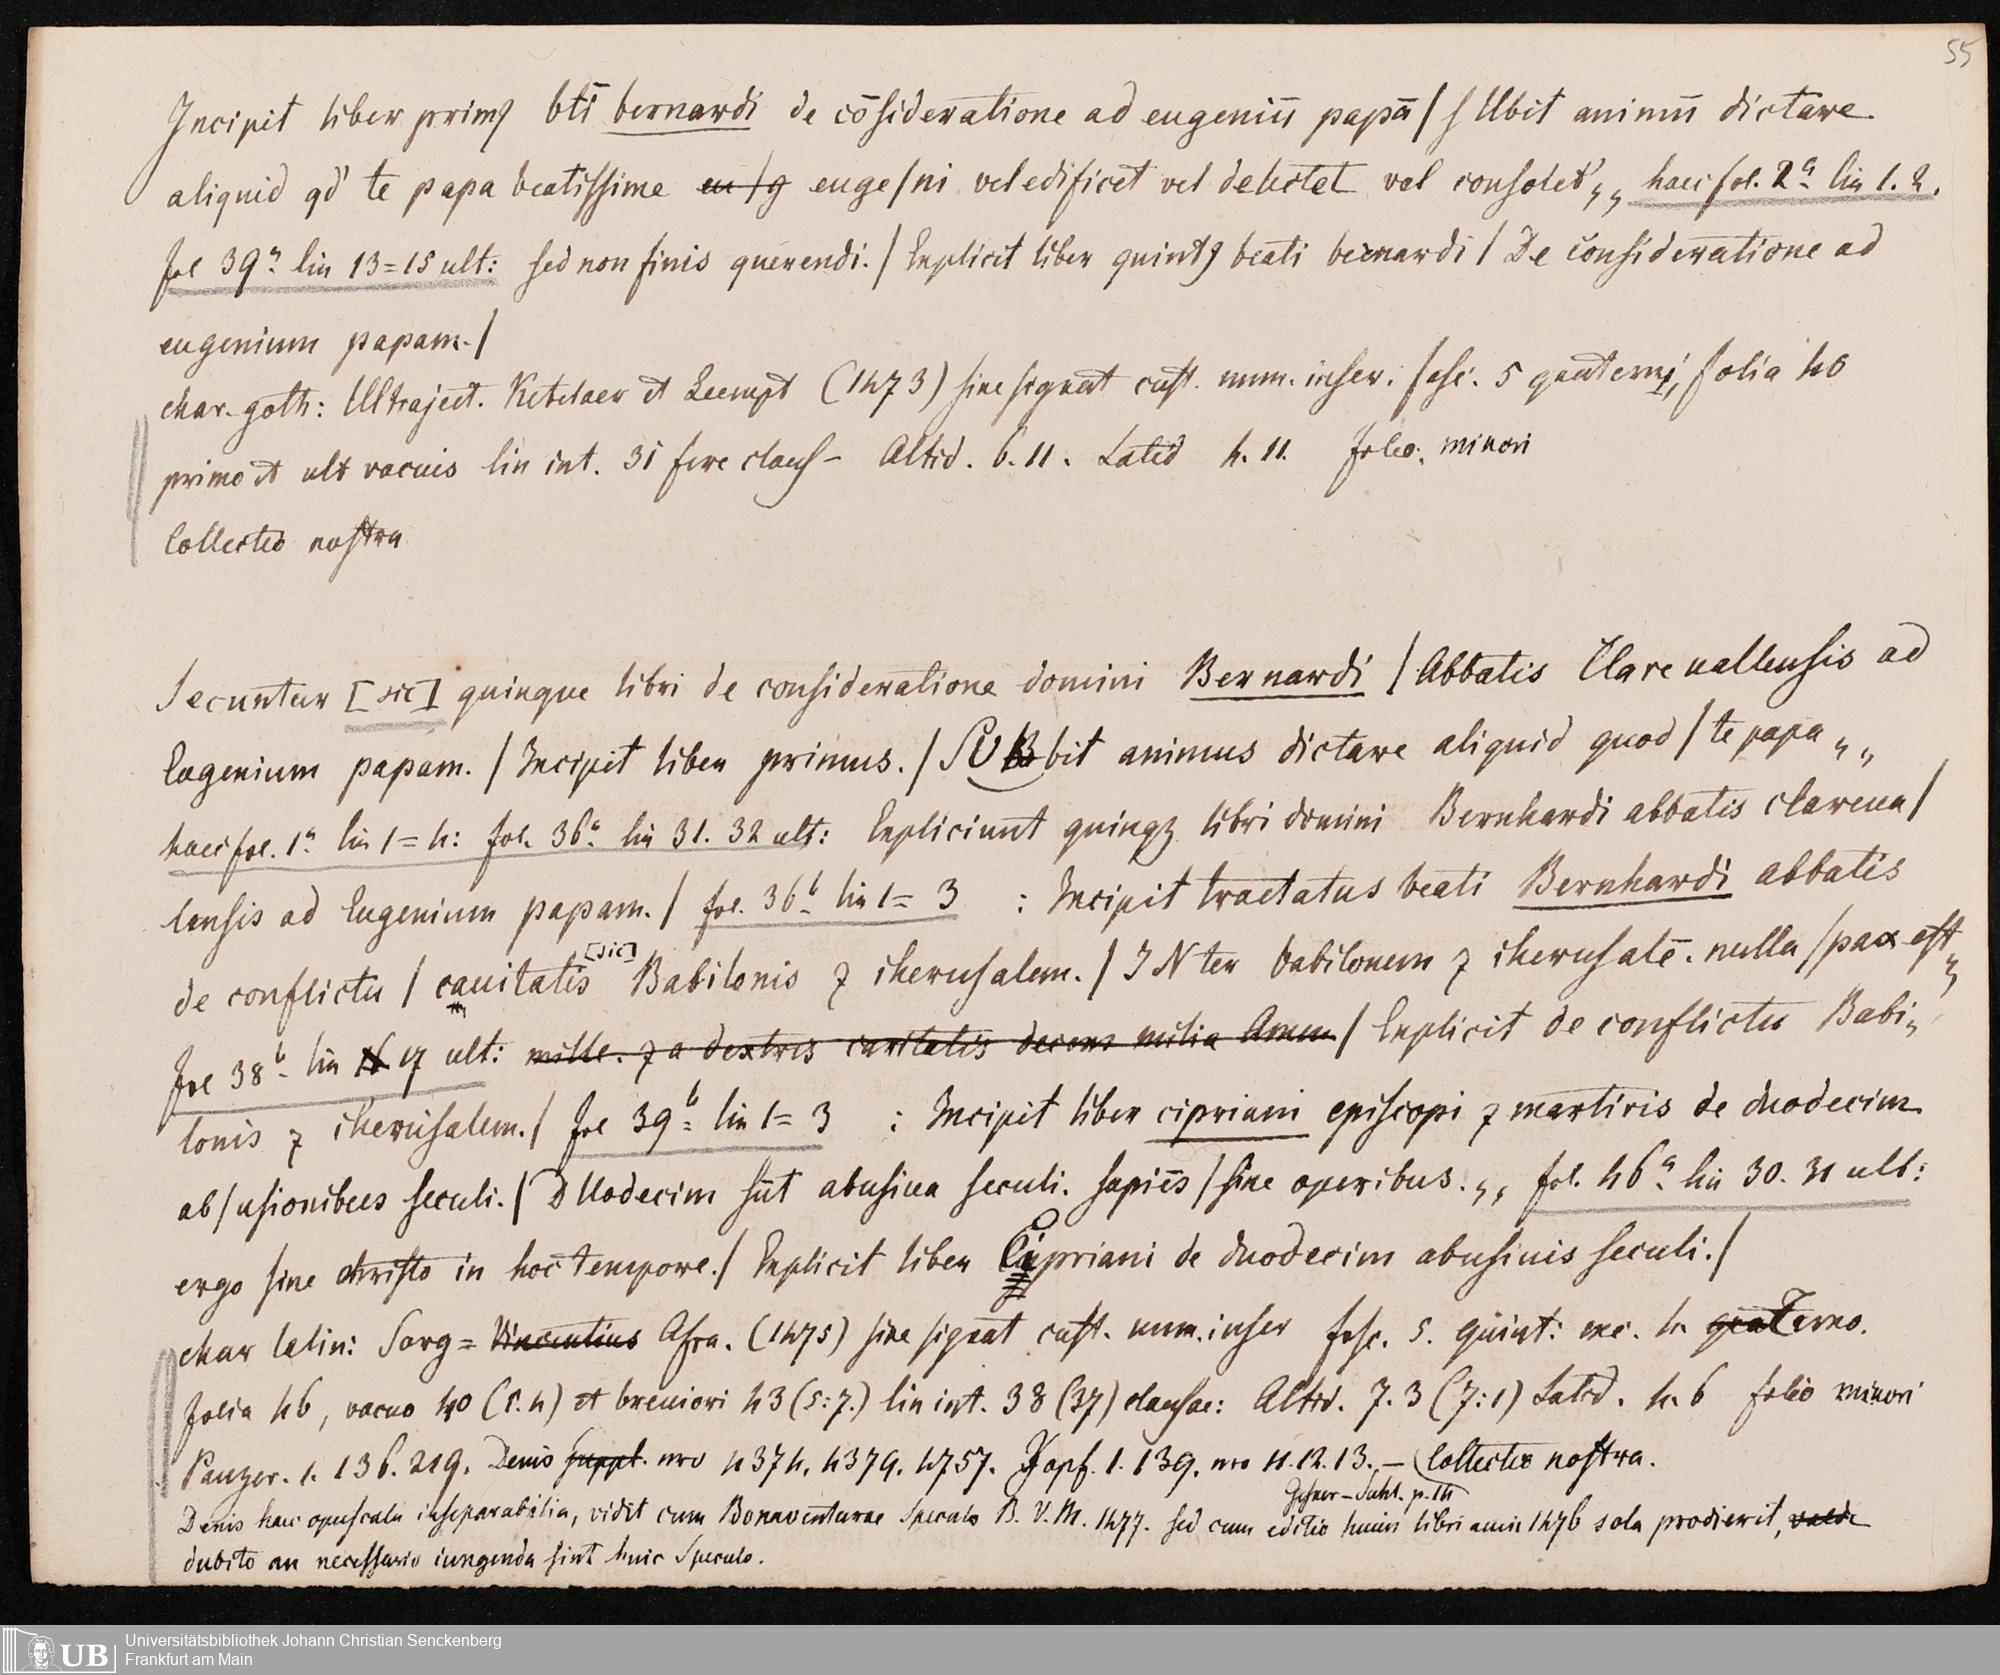 55
Incipit liber primꝯ bti̅ bernardi de co̅sideratione ad eugeniu̅ papa̅ / SUbit animu̅ dictare
aliquid qd' te papa beatissime eu/g euge/ni vel edificet vel delectet vel consolet',, haec fol. 2ª lin 1. 2.
fol 39ª lin 13=15 ult: sed non finis querendi. / Explicit liber quintꝯ beati bernardi / De consideratione ad
eugenium papam. /
char. goth: Ultraject. Ketelaer et Leempt (1473) sine signat cust. num. inser. fasc. 5 quaterni, folia 40
primo et ult vacuis lin int. 31 fere claus- Altid. 6. 11. Latid 4. 11. folio. minori
Collectio nostra
Secuntur [sic] quinque libri de consideratione domini Bernardi / Abbatis Clareuallensis ad
Eugenium papam. / Incipit liber primus. / SUBbit animus dictare aliquid quod / te papa ,,
haec fol. 1ª lin 1=4: fol. 36ª lin 31. 32 ult: Expliciunt quinqꝫ libri domini Bernhardi abbatis clareua /
lensis ad Eugenium papam. / fol. 36ᵇ lin 1=3 : Incipit tractatus beati Bernhardi abbatis
de conflictu / cauitatis [sic] Babilonis ⁊ iherusalem. / INter babilonem ⁊ iherusale̅. nulla / pax est ,,
fol 38ᵇ lin 17 ult: mille. ⁊ a dextris caritatis decem milia Amen / Explicit de conflictu Babi,,
lonis ⁊ iherusalem. / fol 39ᵇ lin 1=3 : Incipit liber cipriani episcopi ⁊ martiris de duodecim
ab/usionibus seculi. / DUodecim su̅t abusiua seculi. sapie̅s / sine operibus. ,, fol. 46ª lin 30. 31 ult:
ergo sine christo in hoc tempore. / Explicit liber Cipriani de duodecim abusiuis seculi. /
char latin: Sorg= Vincentius Afra. (1475) sine signat cust. num. inser fasc. 5. quint: et. 4. quaterno.
folia 46, vacuo 40 (5. 4) et breuiori 43 (5:7.) lin int. 38 (37) clausae: Altid. 7. 3 (7:1) Latid. 4. 6 folio minori
Panzer. 1. 136. 219. Denis suppl. nro 4374. 4379. 4757. Zapf. 1. 139. nro 11. 12. 13. — Collectio nostra.
Gesner-Suhl. p. 14
Denis haec opuscula inseparabilia, vidit cum Bonaventurae Speculo B. V. M. 1477. sed cum editio huius libri anni 1476 sola prodierit, valde
dubito an necessario iungenda sint huic Speculo.
UB
Universitätsbibliothek Johann Christian Senckenberg
Frankfurt am Main